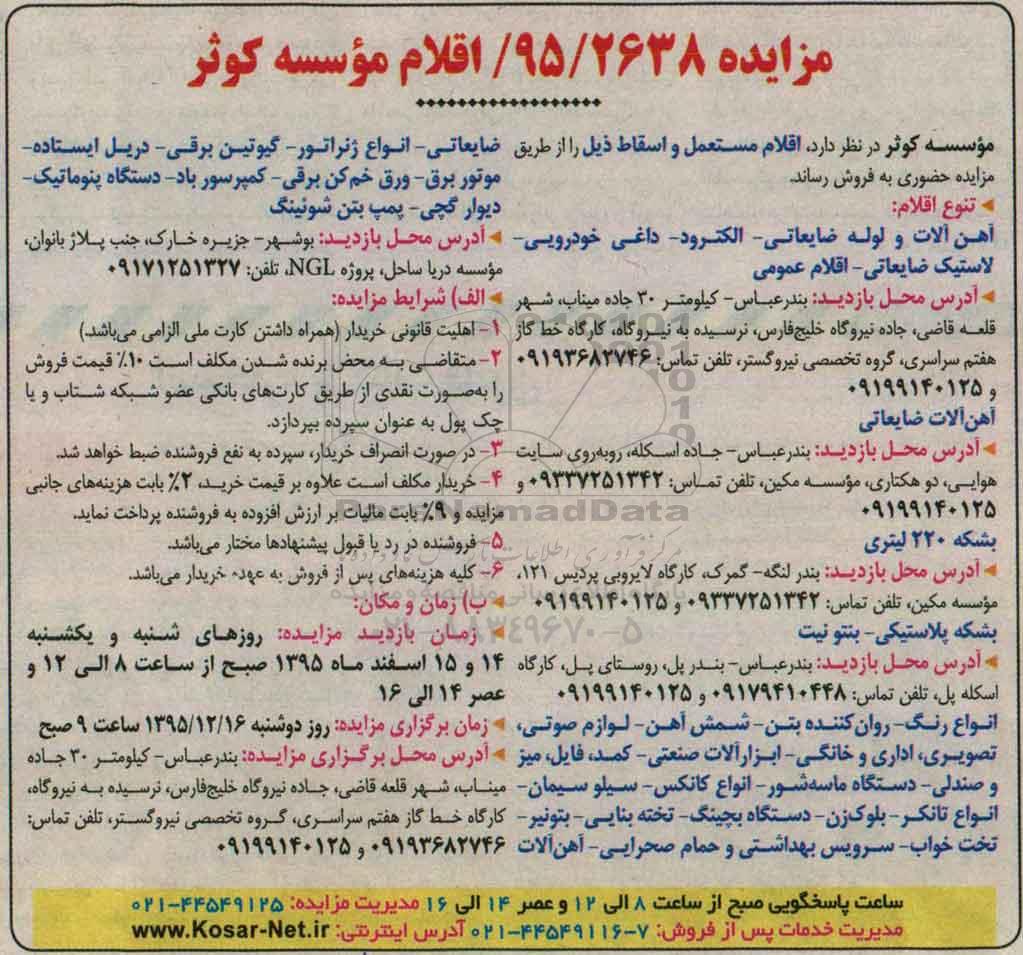 مزایده ۹۵/۲۶۳۸/ اقلام مؤسسه کوثر
مؤسسه کوثر در نظر دارد، اقلام مستعمل و اسقاط ذیل را از طریق
مزایده حضوری به فروش رساند.
تنوع اقلام:
آهن آلات و لوله ضایعاتی- الکترود- داغی خودرویی-
لاستیک ضایعاتی- اقلام عمومی
آدرس محل بازدید: بندرعباس- کیلومتر ۳۰ جاده میناب، شهر
قلعه قاضی، جاده نیروگاه خلیج‌فارس، نرسیده به نیروگاه، کارگاه خط گاز
هفتم سراسری، گروه تخصصی نیروگستر، تلفن تماس: ۰۹۱۹۳۶۸۲۷۴۶
و ۰۹۱۹۹۱۴۰۱۲۵
آهن‌آلات ضایعاتی
آدرس محل بازدید: بندرعباس- جاده اسکله، روبه‌روی سایت
هوایی، دو هکتاری، مؤسسه مکین، تلفن تماس: ۰۹۳۳۷۲۵۱۳۴۲ و
۰۹۱۹۹۱۴۰۱۲۵
بشکه ۲۲۰ لیتری
آدرس محل بازدید: بندر لنگه- گمرک، کارگاه لایروبی پردیس ۱۲۱،
مؤسسه مکین، تلفن تماس: ۰۹۳۳۷۲۵۱۳۴۲ و ۰۹۱۹۹۱۴۰۱۲۵
بشکه پلاستیکی- بنتو نیت
آدرس محل بازدید: بندرعباس- بندر پل، روستای پل، کارگاه
اسکله پل، تلفن تماس: ۰۹۱۷۹۴۱۰۴۴۸ و ۰۹۱۹۹۱۴۰۱۲۵
انواع رنگ- روان‌کننده بتن- شمش آهن- لوازم صوتی،
تصویری، اداری و خانگی- ابزارآلات صنعتی- کمد، فایل، میز
و صندلی- دستگاه ماسه‌شور- انواع کانکس- سیلو سیمان-
انواع تانکر- بلوک‌زن- دستگاه بچینگ- تخته بنایی- بتونیر-
تخت خواب- سرویس بهداشتی و حمام صحرایی- آهن‌آلات
ضایعاتی- انواع ژنراتور- گیوتین برقی- دریل ایستاده-
موتور برق- ورق خم‌کن برقی- کمپرسور باد- دستگاه پنوماتیک-
دیوار گچی- پمپ بتن شوئینگ
آدرس محل بازدید: بوشهر- جزیره خارک، جنب پلاژ بانوان،
مؤسسه دریا ساحل، پروژه NGL، تلفن: ۰۹۱۷۱۲۵۱۳۲۷
الف) شرایط مزایده:
۱- اهلیت قانونی خریدار (همراه داشتن کارت ملی الزامی می‌باشد.)
۲- متقاضی به محض برنده شدن مکلف است ۱۰٪ قیمت فروش
را به‌صورت نقدی از طریق کارت‌های بانکی عضو شبکه شتاب و یا
چک پول به عنوان سپرده بپردازد.
۳- در صورت انصراف خریدار، سپرده به نفع فروشنده ضبط خواهد شد.
۴- خریدار مکلف است علاوه بر قیمت خرید، ۲٪ بابت هزینه‌های جانبی
مزایده و ۹٪ بابت مالیات بر ارزش افزوده به فروشنده پرداخت نماید.
۵- فروشنده در رد یا قبول پیشنهادها مختار می‌باشد.
۶- کلیه هزینه‌های پس از فروش به عهده خریدار می‌باشد.
ب) زمان و مکان:
زمان بازدید مزایده: روزهای شنبه و یکشنبه
۱۴ و ۱۵ اسفند ماه ۱۳۹۵ صبح از ساعت ۸ الی ۱۲ و
عصر ۱۴ الی ۱۶
زمان برگزاری مزایده: روز دوشنبه ۱۳۹۵/۱۲/۱۶ ساعت ۹ صبح
آدرس محل برگزاری مزایده: بندرعباس- کیلومتر ۳۰ جاده
میناب، شهر قلعه قاضی، جاده نیروگاه خلیج‌فارس، نرسیده به نیروگاه،
کارگاه خط گاز هفتم سراسری، گروه تخصصی نیروگستر، تلفن تماس:
۰۹۱۹۳۶۸۲۷۴۶ و ۰۹۱۹۹۱۴۰۱۲۵
ساعت پاسخگویی صبح از ساعت ۸ الی ۱۲ و عصر ۱۴ الی ۱۶ مدیریت مزایده: ۰۲۱-۴۴۵۴۹۱۲۵
مدیریت خدمات پس از فروش: ۷-۰۲۱-۴۴۵۴۹۱۱۶ آدرس اینترنتی: www.Kosar-Net.ir
ParsNamadData
۰۲۱-۸۸۳۴۹۶۷۰-۵